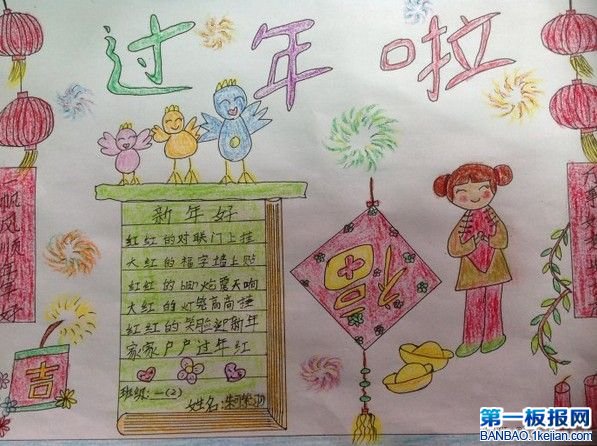 过年啦
帆风顺年年好
新年好
红红的对联门上挂
大红的福字墙上贴
红红的 炮震天响
大红的灯笼高高捶
红红的笑脸迎新年
家家户户过年红
班级:一(2)
姓名:朱
福
吉
第一板报网
BANBAO.1kejian.com